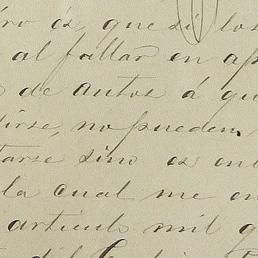 ro és, que si los
al fallar en ap
de autos á qu
dirse, no pueden
tarse sino es en
la cual me en
articulo mil q